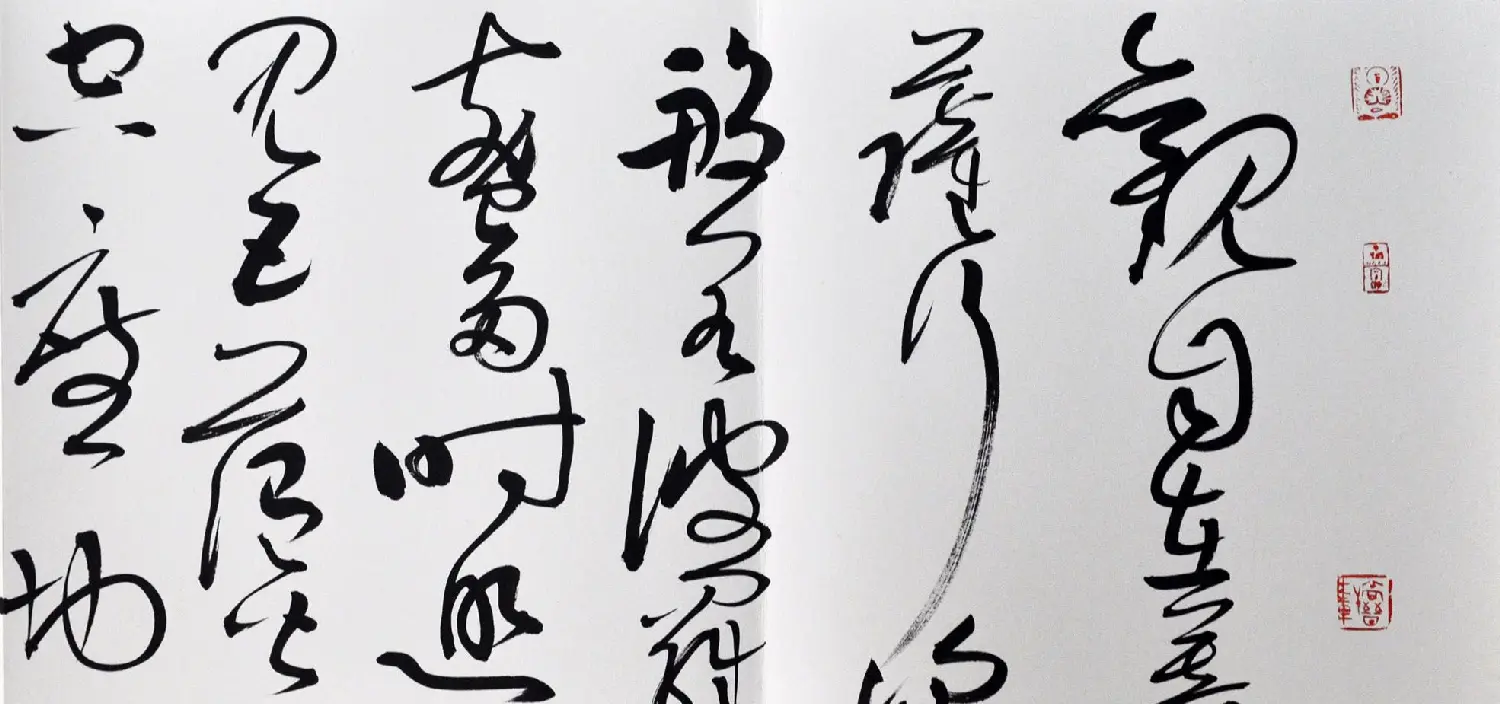 觀自在菩
薩行深
般若波羅
蜜多時照
見五蘊皆
空度一切